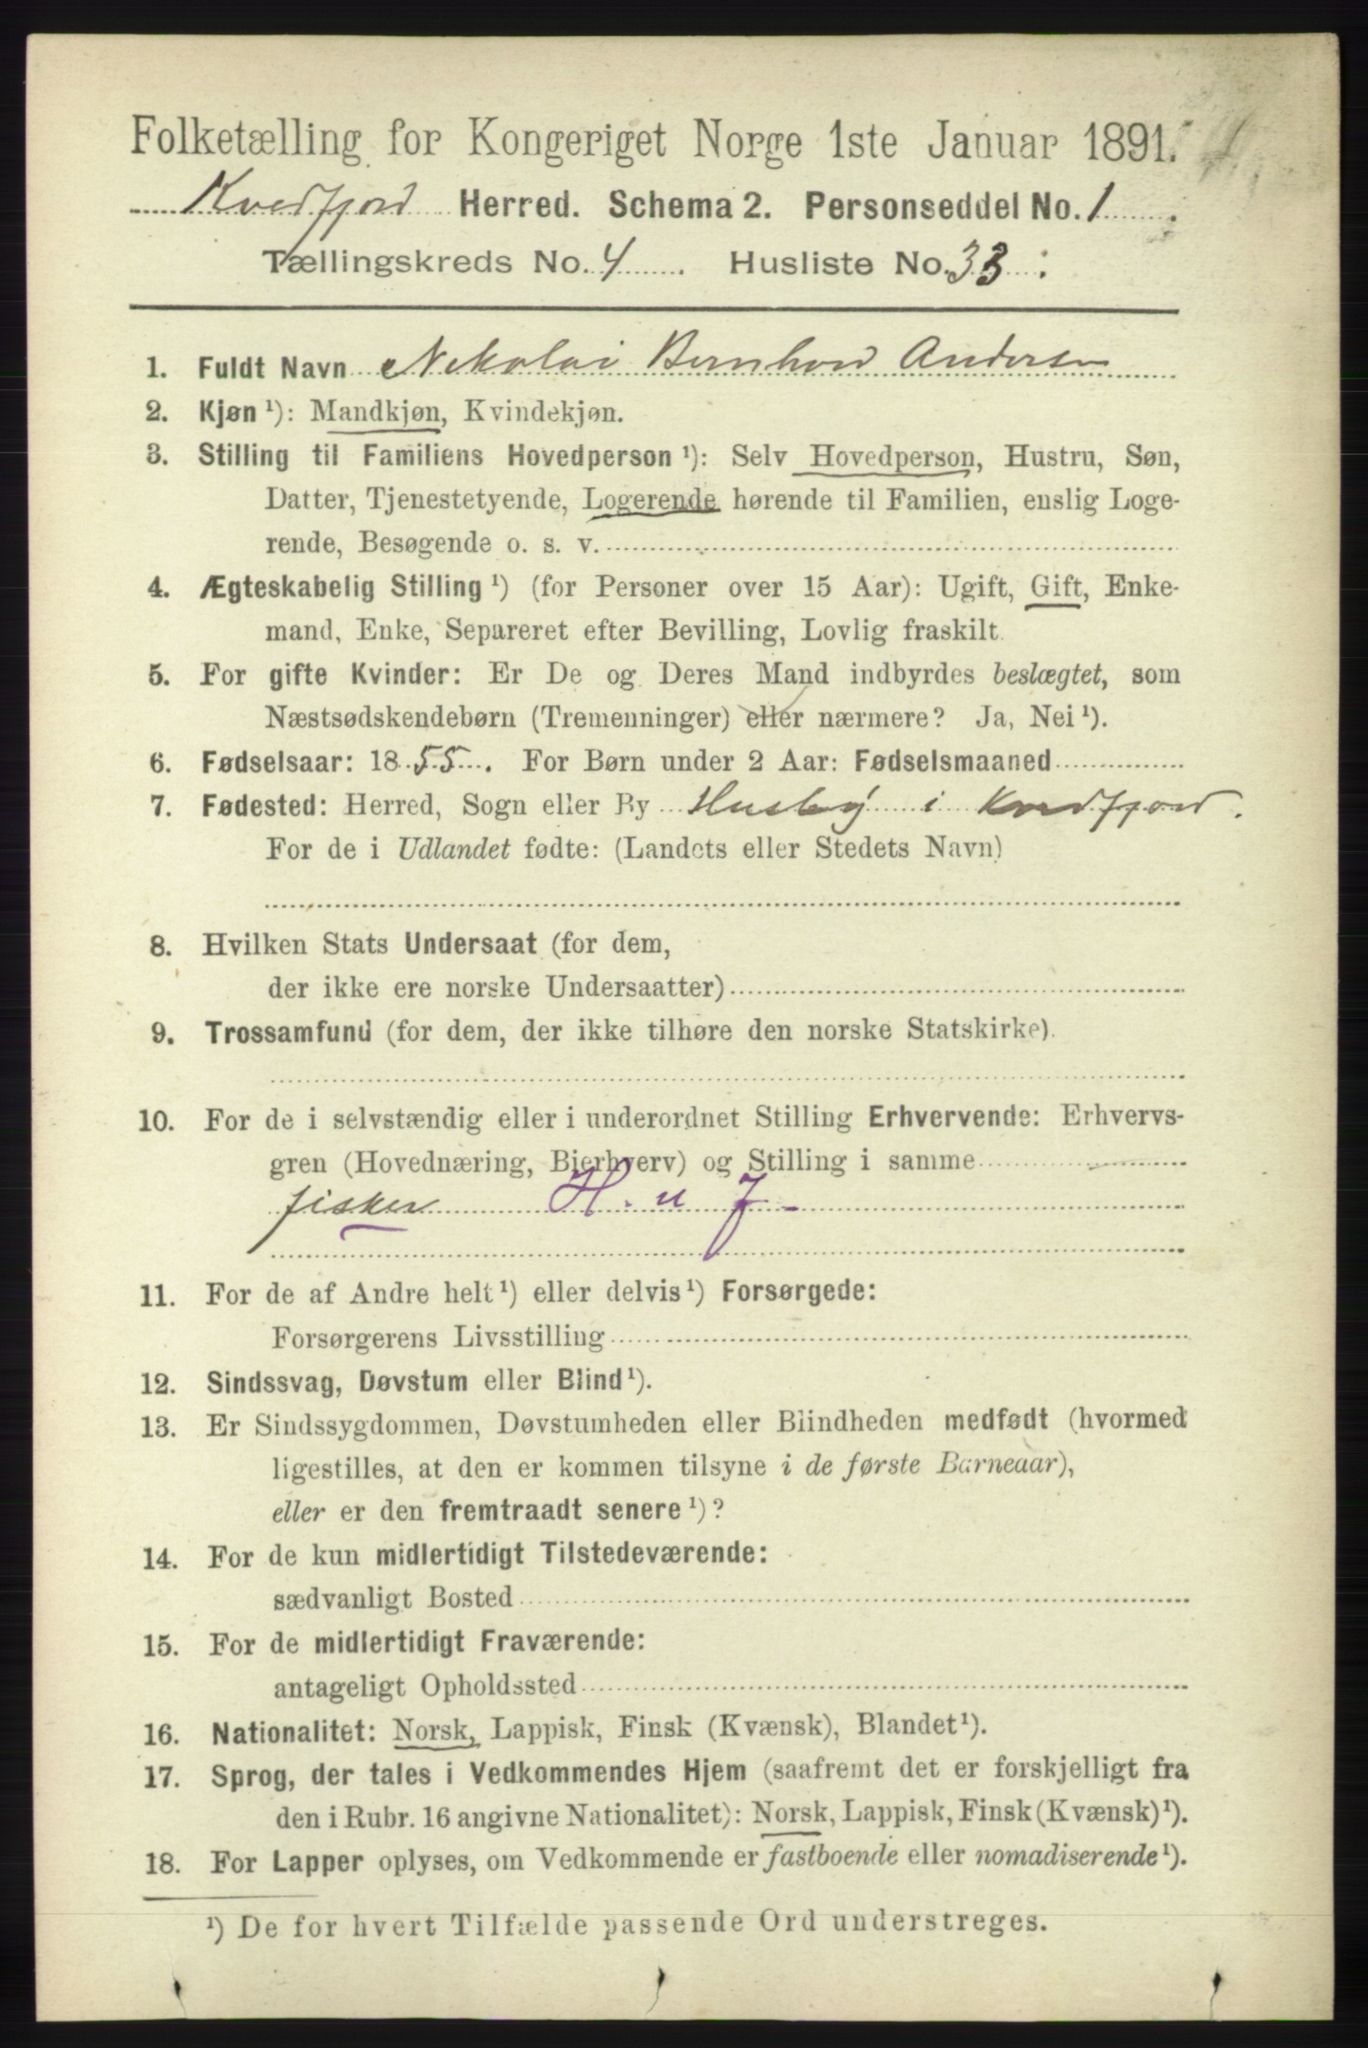 Folketælling for Kongeriget Norge 1ste Januar 1891.
Kvedfjord Herred. Schema 2. Personseddel No. 1.
Tællingskreds No. 4. Husliste No. 33.
1. Fuldt Navn Nikolai Bernhard Andersen
2. Kjøn ¹): Mandkjøn, Kvindekjøn.
3. Stilling til Familiens Hovedperson ¹): Selv Hovedperson, Hustru, Søn,
Datter, Tjenestetyende, Logerende hørende til Familien, enslig Loge-
rende, Besøgende o. s. v.
4. Ægteskabelig Stilling ¹) (for Personer over 15 Aar): Ugift, Gift, Enke-
mand, Enke, Separeret efter Bevilling, Lovlig fraskilt
5. For gifte Kvinder: Er De og Deres Mand indbyrdes beslægtet, som
Næstsødskendebørn (Tremenninger) eller nærmere? Ja, Nei ¹).
6. Fødselsaar: 1855. For Børn under 2 Aar: Fødselsmaaned
7. Fødested: Herred, Sogn eller By Husby i Kvedfjord.
For de i Udlandet fødte: (Landets eller Stedets Navn)
8. Hvilken Stats Undersaat (for dem,
der ikke ere norske Undersaatter)
9. Trossamfund (for dem, der ikke tilhøre den norske Statskirke).
10. For de i selvstændig eller i underordnet Stilling Erhvervende: Erhvervs-
gren (Hovednæring, Bierhverv) og Stilling i samme
fisker H. u F.
11. For de af Andre helt ¹) eller delvis ¹) Forsørgede:
Forsørgerens Livsstilling
12. Sindssvag, Døvstum eller Blind ¹).
13. Er Sindssygdommen, Døvstumheden eller Blindheden medfødt (hvormed
ligestilles, at den er kommen tilsyne i de første Barneaar),
eller er den fremtraadt senere ¹)?
14. For de kun midlertidigt Tilstedeværende:
sædvanligt Bosted
15. For de midlertidigt Fraværende:
antageligt Opholdssted
16. Nationalitet: Norsk, Lappisk, Finsk (Kvænsk), Blandet ¹).
17. Sprog, der tales i Vedkommendes Hjem (saafremt det er forskjelligt fra
den i Rubr. 16 angivne Nationalitet): Norsk, Lappisk, Finsk (Kvænsk) ¹).
18. For Lapper oplyses, om Vedkommende er fastboende eller nomadiserende ¹).
¹) De for hvert Tilfælde passende Ord understreges.